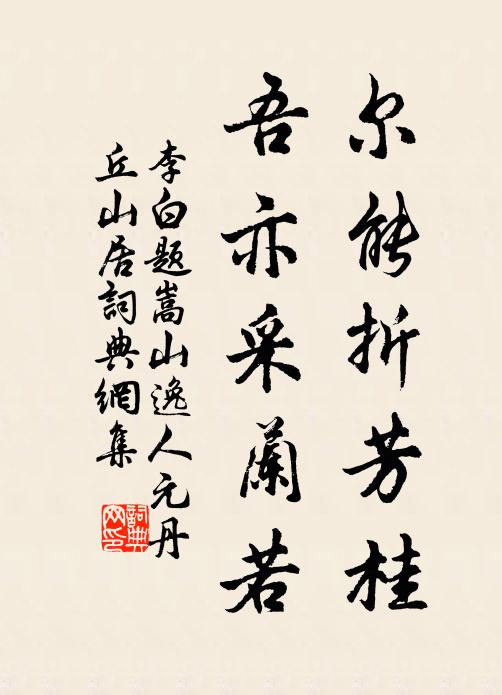 尔能折芳桂
吾亦采蘭若
李白题嵩山逸人元丹
丘山居詞典網集
詞典
网印